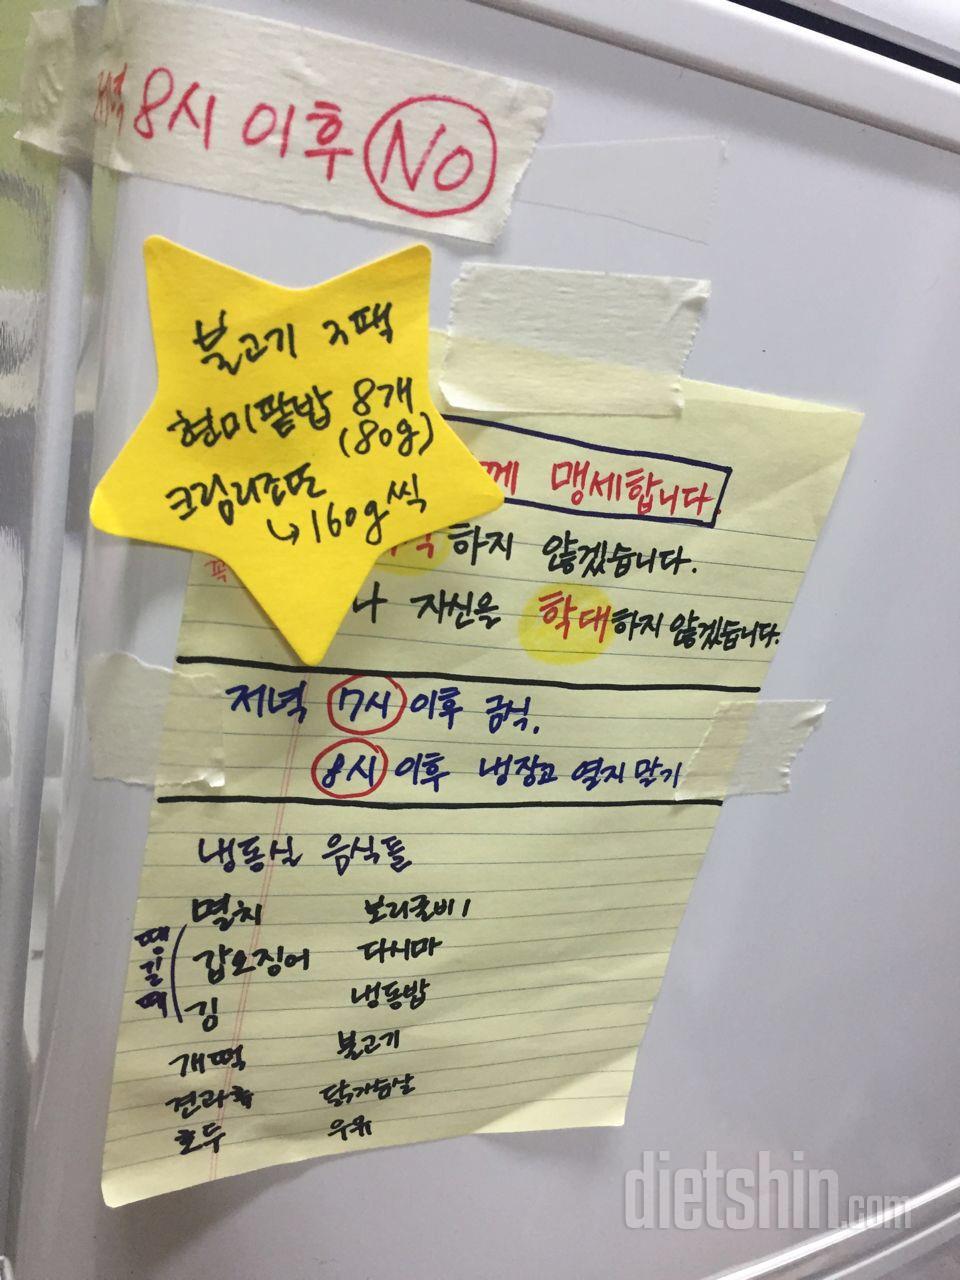 저녁 8시 이후 No
불고기 3팩
현미팥밥 8개
(80g)
크림리조또
↳160g씩
께 맹세합니다.
하지 않겠습니다.
나 자신을 학대하지 않겠습니다.
저녁 7시 이후 금식.
8시 이후 냉장고 열지 말기
냉동실 음식들
땡길때
멸치 보리굴비 1
갑오징어 다시마
김 냉동밥
개떡 불고기
견과류 닭가슴살
호두 우유
dietshin.com